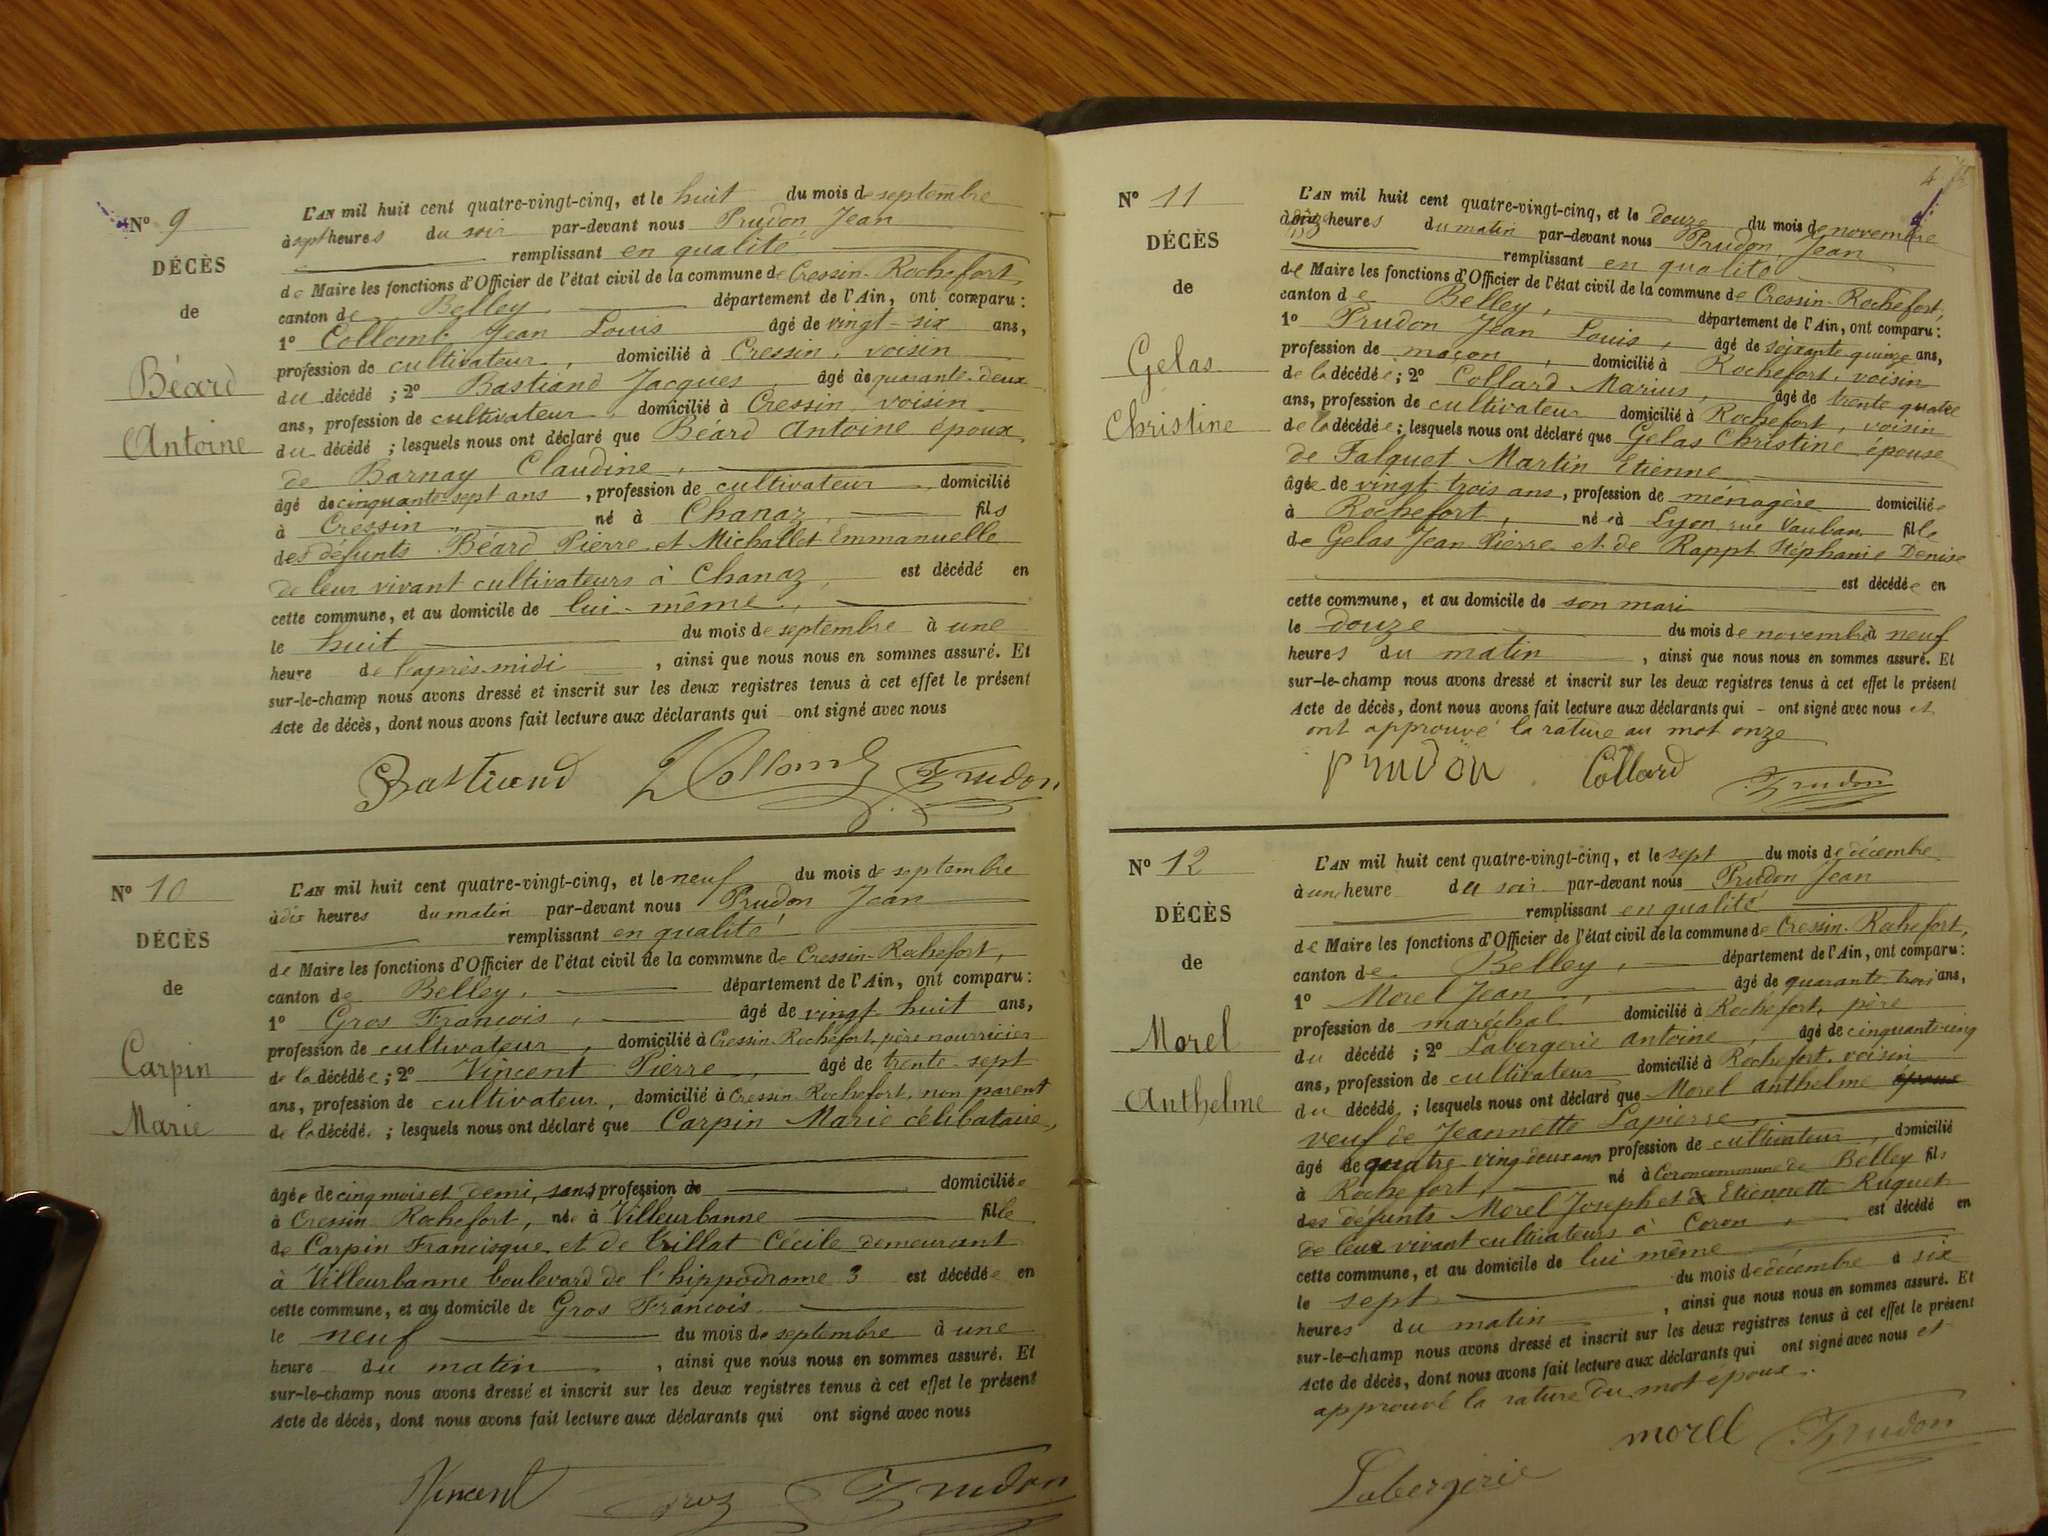 Nº 9
DÉCÈS
de
Béard
Antoine
L'AN mil huit cent quatre-vingt-cinq, et le huit du mois de septembre
à sept heures du soir par-devant nous Prudon Jean
remplissant en qualité
de Maire les fonctions d'Officier de l'état civil de la commune de Cressin-Rochefort,
canton de Belley, département de l'Ain, ont comparu :
1º Collomb Jean Louis âgé de vingt-six ans,
profession de cultivateur, domicilié à Cressin, voisin
du décédé ; 2º Bastiand Jacques, âgé de quarante-deux
ans, profession de cultivateur, domicilié à Cressin, voisin
du décédé ; lesquels nous ont déclaré que Béard Antoine époux
de Barnay Claudine,
âgé de cinquante sept ans, profession de cultivateur domicilié
à Cressin, né à Chanaz, fils
des défunts Béard Pierre et Michallet Emmanuelle
de leur vivant cultivateurs à Chanaz, est décédé en
cette commune, et au domicile de lui-même,
le huit du mois de septembre à une
heure de l'après-midi, ainsi que nous nous en sommes assuré. Et
sur-le-champ nous avons dressé et inscrit sur les deux registres tenus à cet effet le présent
Acte de décès, dont nous avons fait lecture aux déclarants qui ont signé avec nous
Bastiand Collomb Prudon
Nº 10
DÉCÈS
de
Carpin
Marie
L'AN mil huit cent quatre-vingt-cinq, et le neuf du mois de septembre
à dix heures du matin par-devant nous Prudon Jean
remplissant en qualité
de Maire les fonctions d'Officier de l'état civil de la commune de Cressin-Rochefort,
canton de Belley, département de l'Ain, ont comparu :
1º Gros François, âgé de vingt huit ans,
profession de cultivateur, domicilié à Cressin-Rochefort, père nourricier
de la décédée ; 2º Vincent Pierre, âgé de trente-sept
ans, profession de cultivateur, domicilié à Cressin-Rochefort, non parent
de la décédée ; lesquels nous ont déclaré que Carpin Marie célibataire,
âgée de cinq mois et demi, sans profession de domiciliée
à Cressin Rochefort, née à Villeurbanne fille
de Carpin Francisque et de Trillat Cécile demeurant
à Villeurbanne boulevard de l'hippodrome 3 est décédée en
cette commune, et au domicile de Gros François
le neuf du mois de septembre à une
heure du matin, ainsi que nous nous en sommes assuré. Et
sur-le-champ nous avons dressé et inscrit sur les deux registres tenus à cet effet le présent
Acte de décès, dont nous avons fait lecture aux déclarants qui ont signé avec nous
Vincent Gros Prudon
Nº 11
DÉCÈS
de
Gelas
Christine
L'AN mil huit cent quatre-vingt-cinq, et le douze du mois de novembre
heures du matin par-devant nous Prudon Jean
remplissant en qualité
de Maire les fonctions d'Officier de l'état civil de la commune de Cressin-Rochefort,
canton de Belley, département de l'Ain, ont comparu :
1º Prudon Jean Louis, âgé de soixante quinze ans,
profession de maçon, domicilié à Rochefort, voisin
de la décédée ; 2º Collard Marius, âgé de trente quatre
ans, profession de cultivateur domicilié à Rochefort, voisin
de la décédée ; lesquels nous ont déclaré que Gelas Christine épouse
de Falquet Martin Etienne
âgée de vingt trois ans, profession de ménagère domiciliée
à Rochefort, née à Lyon rue Vauban fille
de Gelas Jean Pierre et de Rappt Stéphanie Denise
est décédée en
cette commune, et au domicile de son mari
le douze du mois de novembre à neuf
heures du matin, ainsi que nous nous en sommes assuré. Et
sur-le-champ nous avons dressé et inscrit sur les deux registres tenus à cet effet le présent
Acte de décès, dont nous avons fait lecture aux déclarants qui ont signé avec nous et
ont approuvé la rature au mot onze
Prudon Collard Prudon
Nº 12
DÉCÈS
de
Morel
Anthelme
L'AN mil huit cent quatre-vingt-cinq, et le sept du mois de décembre
à une heure du soir par-devant nous Prudon Jean
remplissant en qualité
de Maire les fonctions d'Officier de l'état civil de la commune de Cressin-Rochefort,
canton de Belley, département de l'Ain, ont comparu :
1º Morel Jean, âgé de quarante-trois ans,
profession de maréchal domicilié à Rochefort, père
du décédé ; 2º Labergerie Antoine, âgé de cinquante-cinq
ans, profession de cultivateur domicilié à Rochefort, voisin
du décédé ; lesquels nous ont déclaré que Morel Anthelme époux
veuf de Jeannette Lapierre,
âgé de quatre vingt deux ans profession de cultivateur, domicilié
à Rochefort, né à Coron commune de Belley fils
des défunts Morel Joseph et de Etiennette Ruguet
de leur vivant cultivateurs à Coron, est décédé en
cette commune, et au domicile de lui même
le sept du mois de décembre à six
heures du matin, ainsi que nous nous en sommes assuré. Et
sur-le-champ nous avons dressé et inscrit sur les deux registres tenus à cet effet le présent
Acte de décès, dont nous avons fait lecture aux déclarants qui ont signé avec nous et
approuvé la rature du mot époux.
Labergerie Morel Prudon